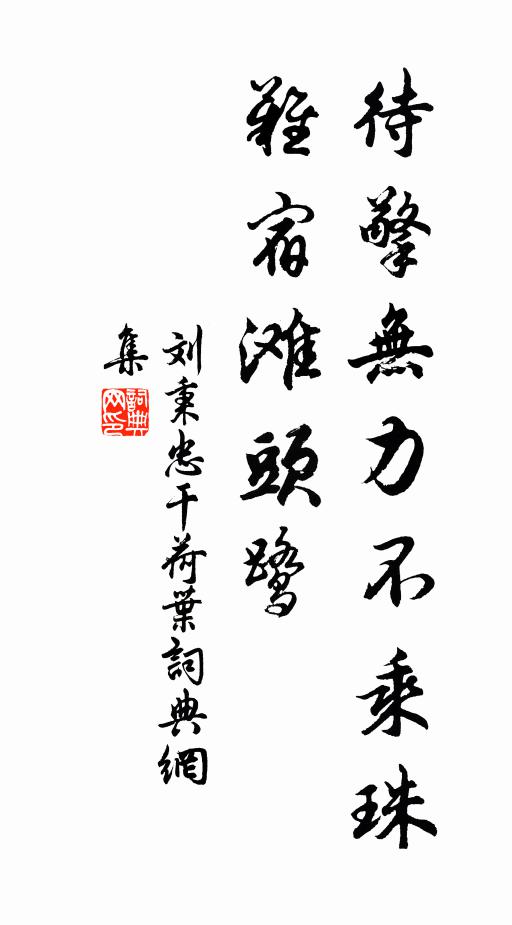 待擎無力不乘珠
難宿滩頭鹭
刘秉忠干荷葉詞典網
集
詞典
网印